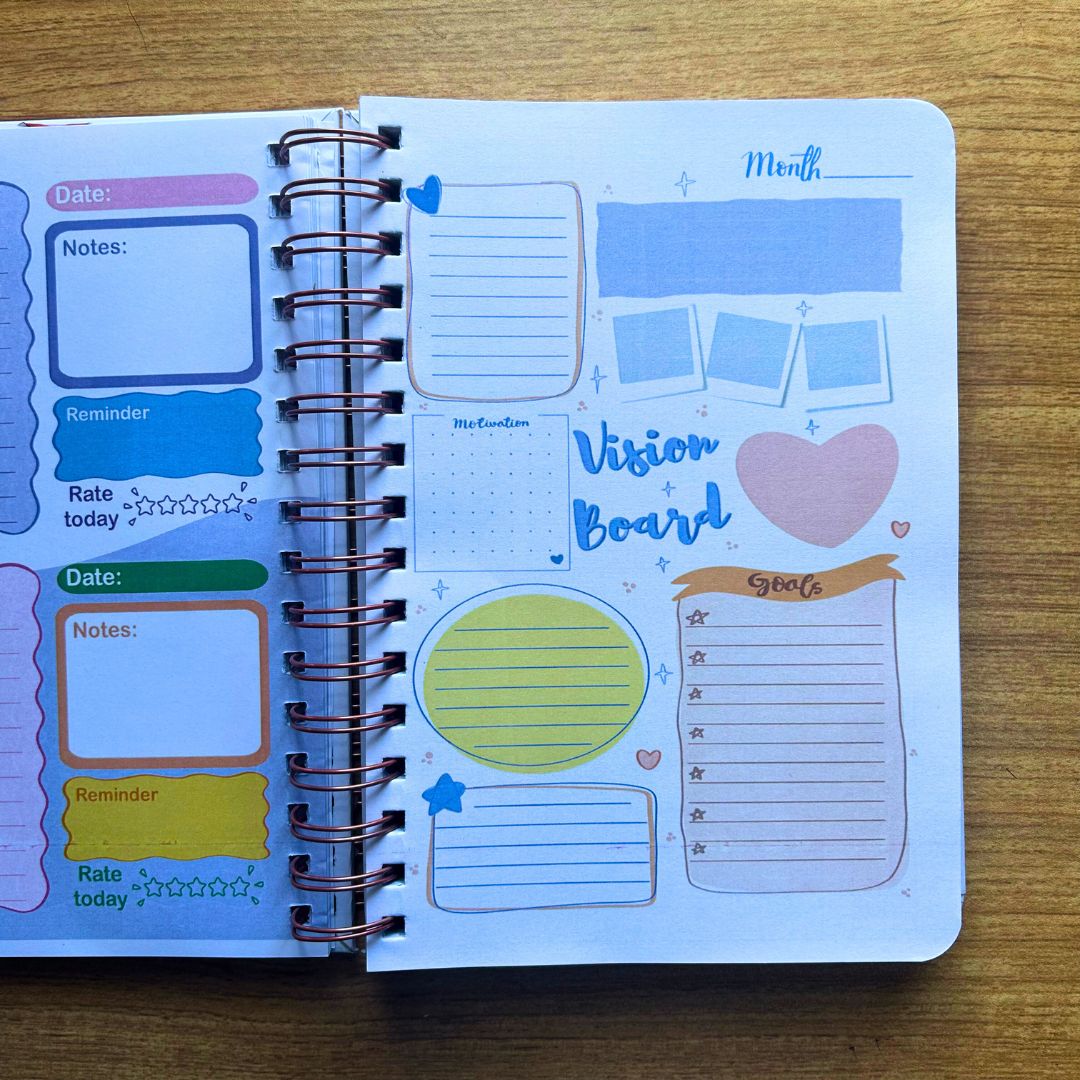 Date:
Notes:
Reminder
Rate
today
Date:
Notes:
Reminder
Rate
today
Month
Motivation
Vision
Board
Goals